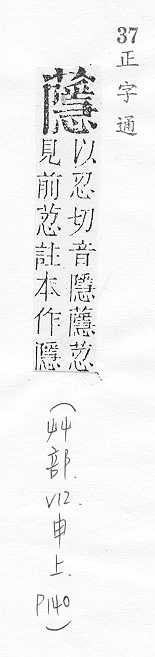 37 正字通
蘟 以忍切音隱蘟荵
見前荵註本作隱
(艸部. V12. 申上. P140)